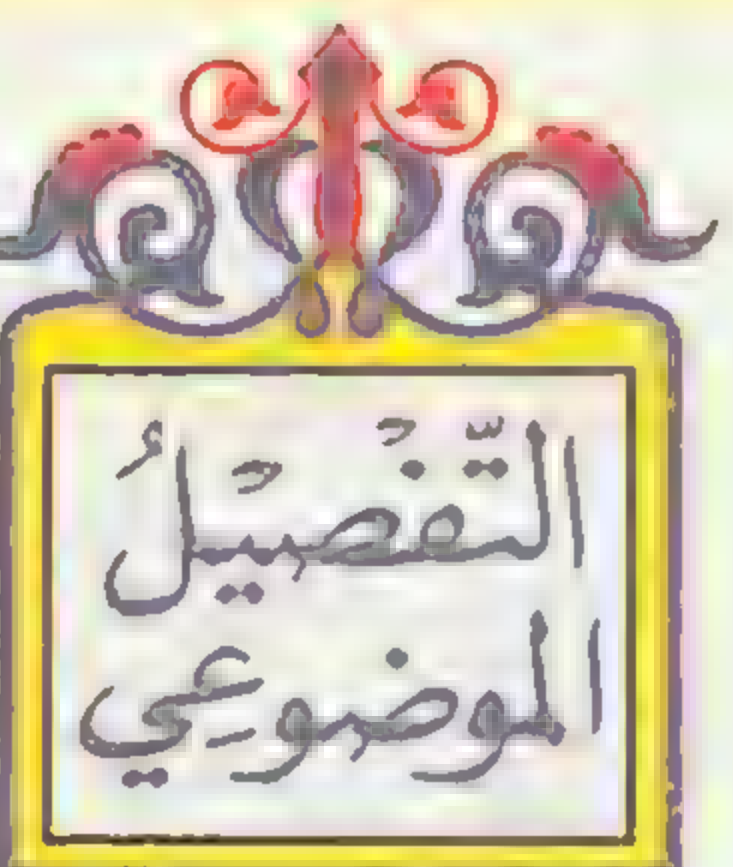 التّفْصيْلُ
الموضوعِي